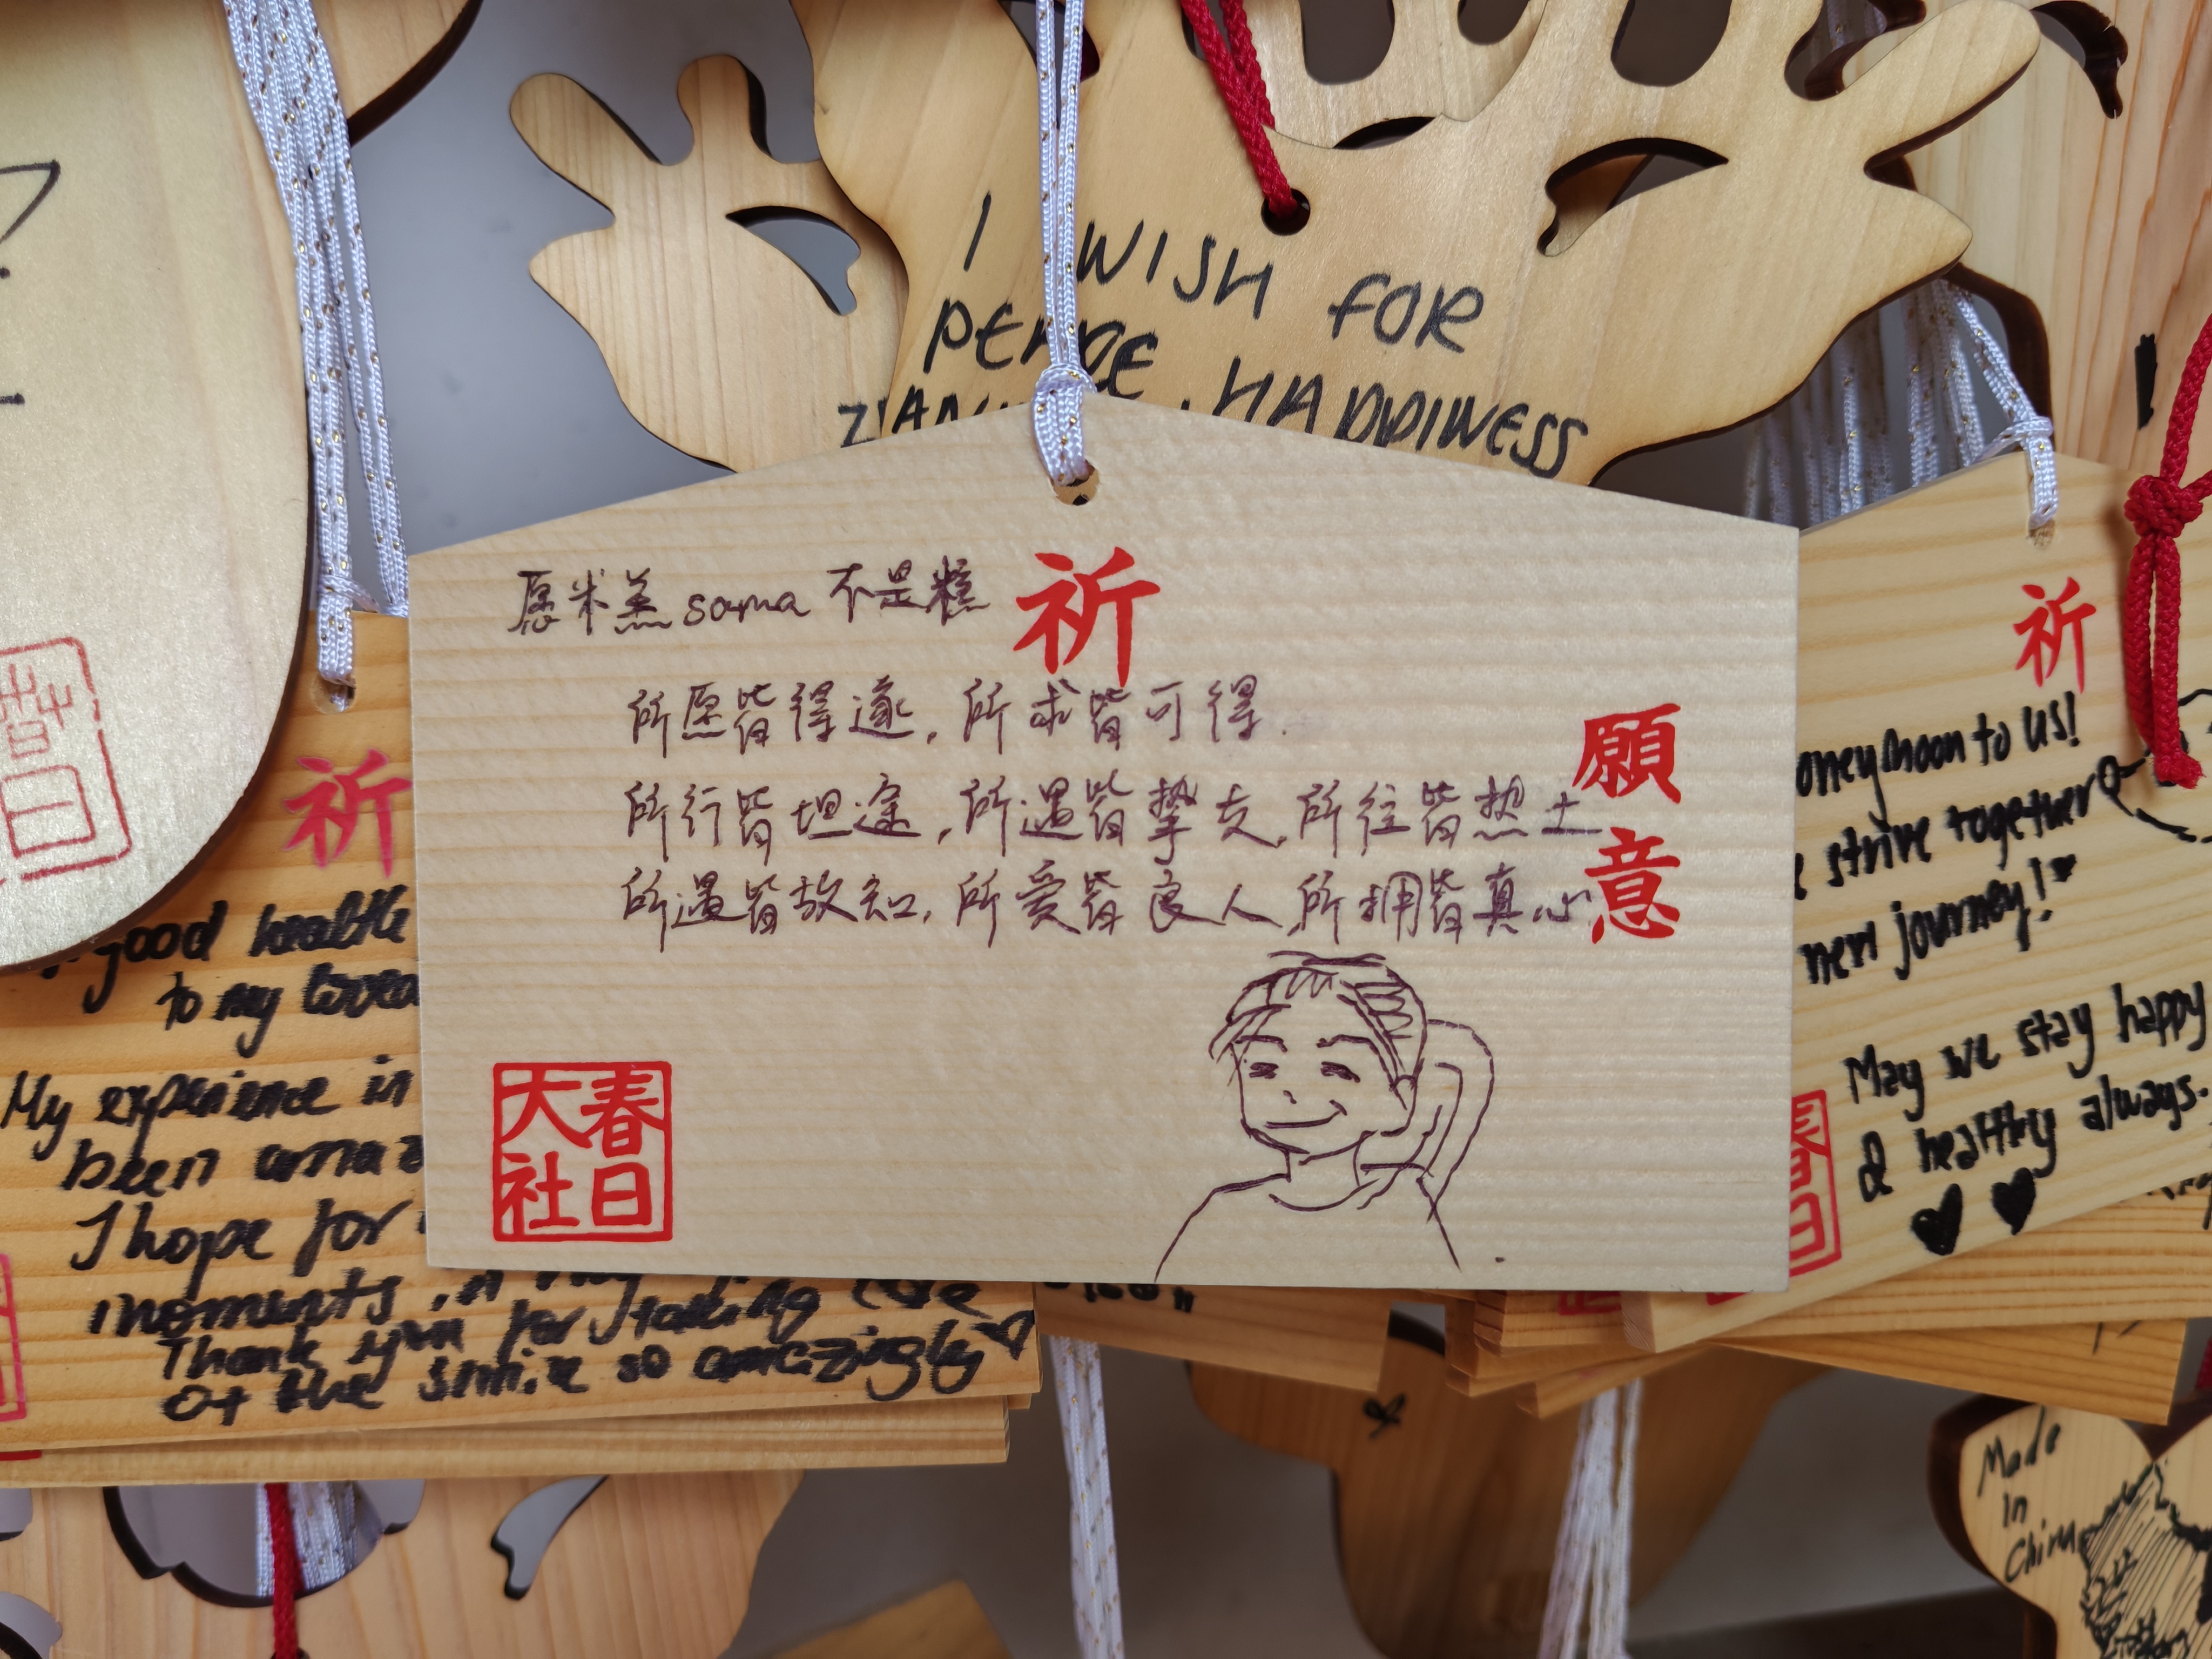 I WISH FOR
PEACE
, HAPPINESS
愿米羔sama不是糕
祈
所愿皆得遂,所求皆可得.
所行皆坦途,所遇皆挚友,所往皆热土
所遇皆故知,所爱皆良人,所拥皆真心
願意
春日大社
祈
good health
to my loved
My experience in
been amaz
I hope for
moments, in my
Thank you for taking care
of the smile so amazingly
祈
oneymoon to us!
strive together
new journey!
May we stay happy
& healthy always.
春日
Made
In
China